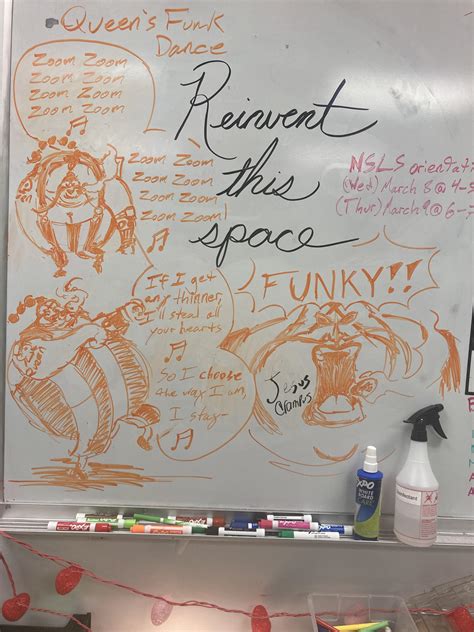 Queen's Funk
Dance
Zoom Zoom
Zoom Zoom
Zoom Zoom
Zoom Zoom
Zoom Zoom
Zoom Zoom
Zoom Zoom
Zoom Zoom!
Reinvent
this
space
NSLS orientati
(Wed) March 8 @ 4-
(Thur) March 9 @ 6-
If I get
any thinner,
I'll steal all
your hearts
So I choose
the way I am,
I stay-
FUNKY!!
Jesus
EXPO
WHITE BOARD
Disinfectant